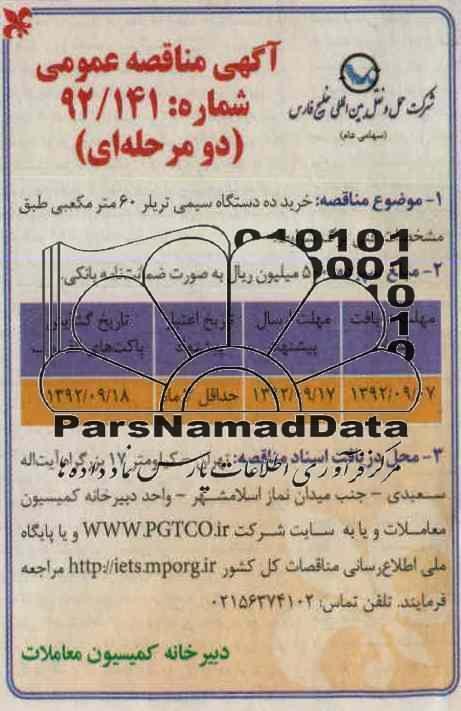 آگهی مناقصه عمومی
شماره: ۹۲/۱۴۱
(دو مرحله‌ای)
شرکت حمل و نقل بین المللی خلیج فارس
(سهامی عام)
۱- موضوع مناقصه: خرید ده دستگاه سیمی تریلر ۶۰ متر مکعبی طبق
010101
۲- میلیون ریال به صورت ضمانتنامه بانکی.
مهلت دریافت
مهلت ارسال پیشنهاد
تاریخ اعتبار پیشنهاد
تاریخ گشایش پاکت‌های
۱۳۹۲/۰۹/۰۷
۱۳۹۲/۰۹/۱۷
حداقل ماه
۱۳۹۲/۰۹/۱۸
ParsNamadData
مرکز فرآوری اطلاعات پارس نماد داده ها
۳- محل دریافت اسناد مناقصه: تهران - کیلومتر ۱۷ بزرگراه آیت‌اله
سعیدی - جنب میدان نماز اسلامشهر - واحد دبیرخانه کمیسیون
معاملات و یا به سایت شرکت WWW.PGTCO.ir و یا پایگاه
ملی اطلاع‌رسانی مناقصات کل کشور http://iets.mporg.ir مراجعه
فرمایند. تلفن تماس: ۰۲۱۵۶۳۷۴۱۰۲
دبیرخانه کمیسیون معاملات